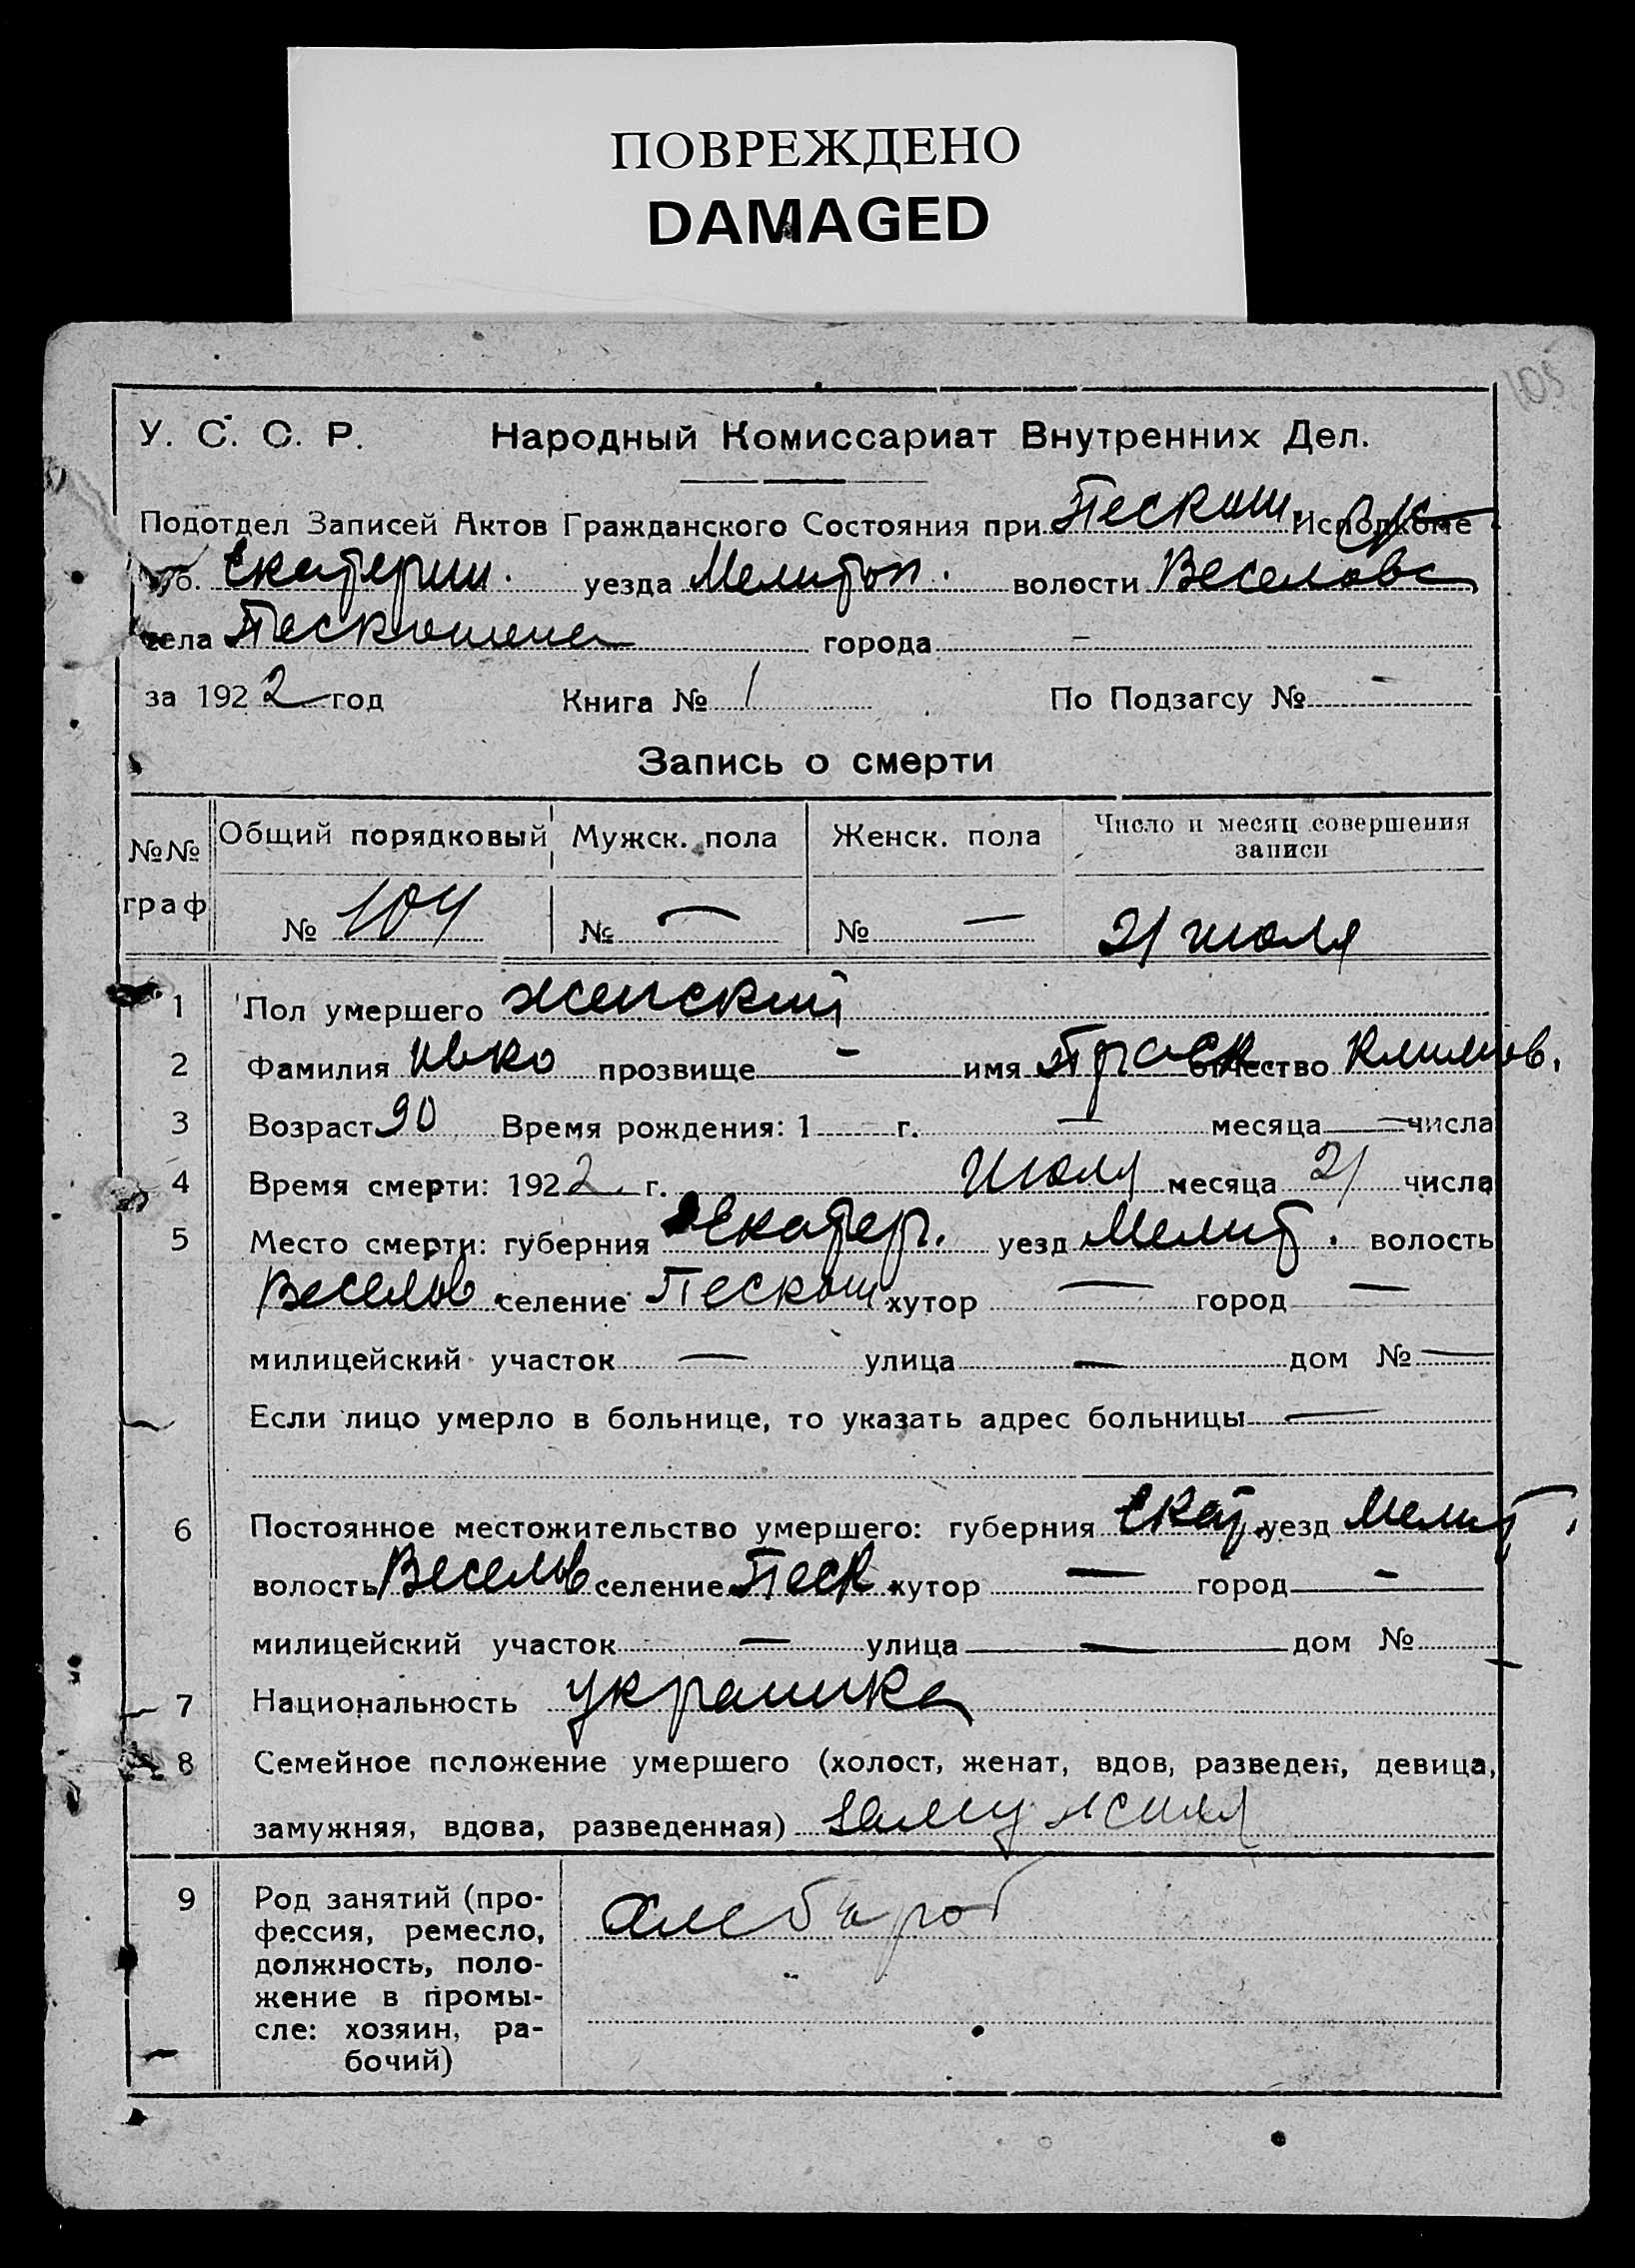 ПОВРЕЖДЕНО
DAMAGED
105
У. С. С. Р. Народный Комиссариат Внутренних Дел.
Подотдел Записей Актов Гражданского Состояния при Пескош. Исполкоме
губ. Екатерин. уезда Мелитоп. волости Веселовс
села Пескошине города –
за 1922 год Книга № 1 По Подзагсу № –
Запись о смерти
№№ граф
Общий порядковый Мужск. пола Женск. пола Число и месяц совершения записи
№ 104 № — № — 21 июля
1 Пол умершего женский
2 Фамилия Ивко прозвище – имя Праск отчество Климов.
3 Возраст 90 Время рождения: 1 г. — месяца — числа
4 Время смерти: 1922 г. Июля месяца 21 числа
5 Место смерти: губерния Екатер. уезд Мелит. волость
Веселов. селение Пескош хутор — город —
милицейский участок — улица — дом № —
Если лицо умерло в больнице, то указать адрес больницы —
6 Постоянное местожительство умершего: губерния Екат. уезд Мелит.
волость Веселов селение Песк. хутор — город –
милицейский участок — улица — дом № —
7 Национальность украинка
8 Семейное положение умершего (холост, женат, вдов, разведен, девица,
замужняя, вдова, разведенная) замужняя
9 Род занятий (про-
фессия, ремесло,
должность, поло-
жение в промы-
сле: хозяин, ра-
бочий)
хлебароб